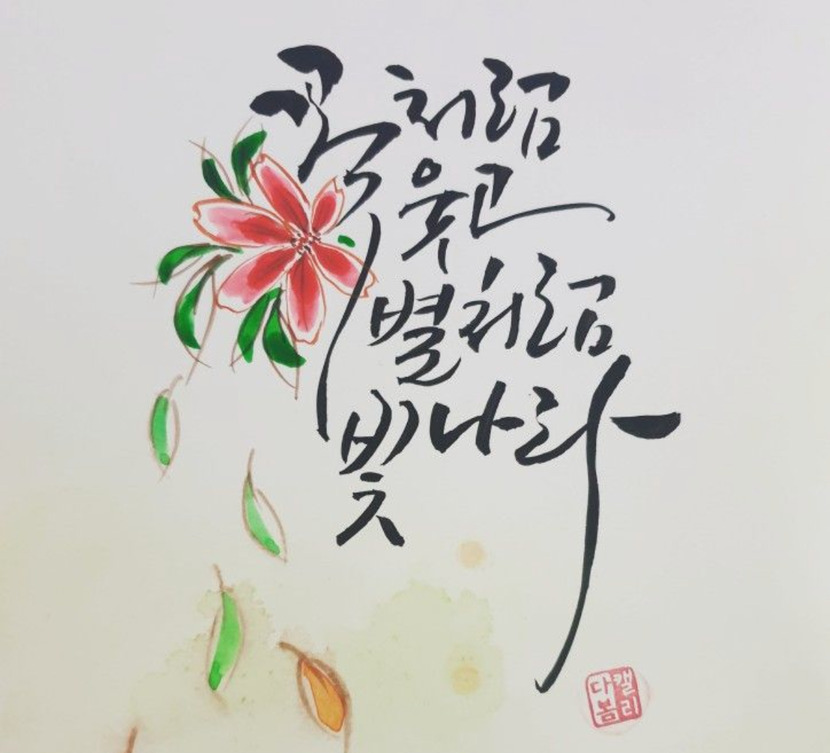 꽃처럼
웃고
별처럼
빛나라
캘리
다봄